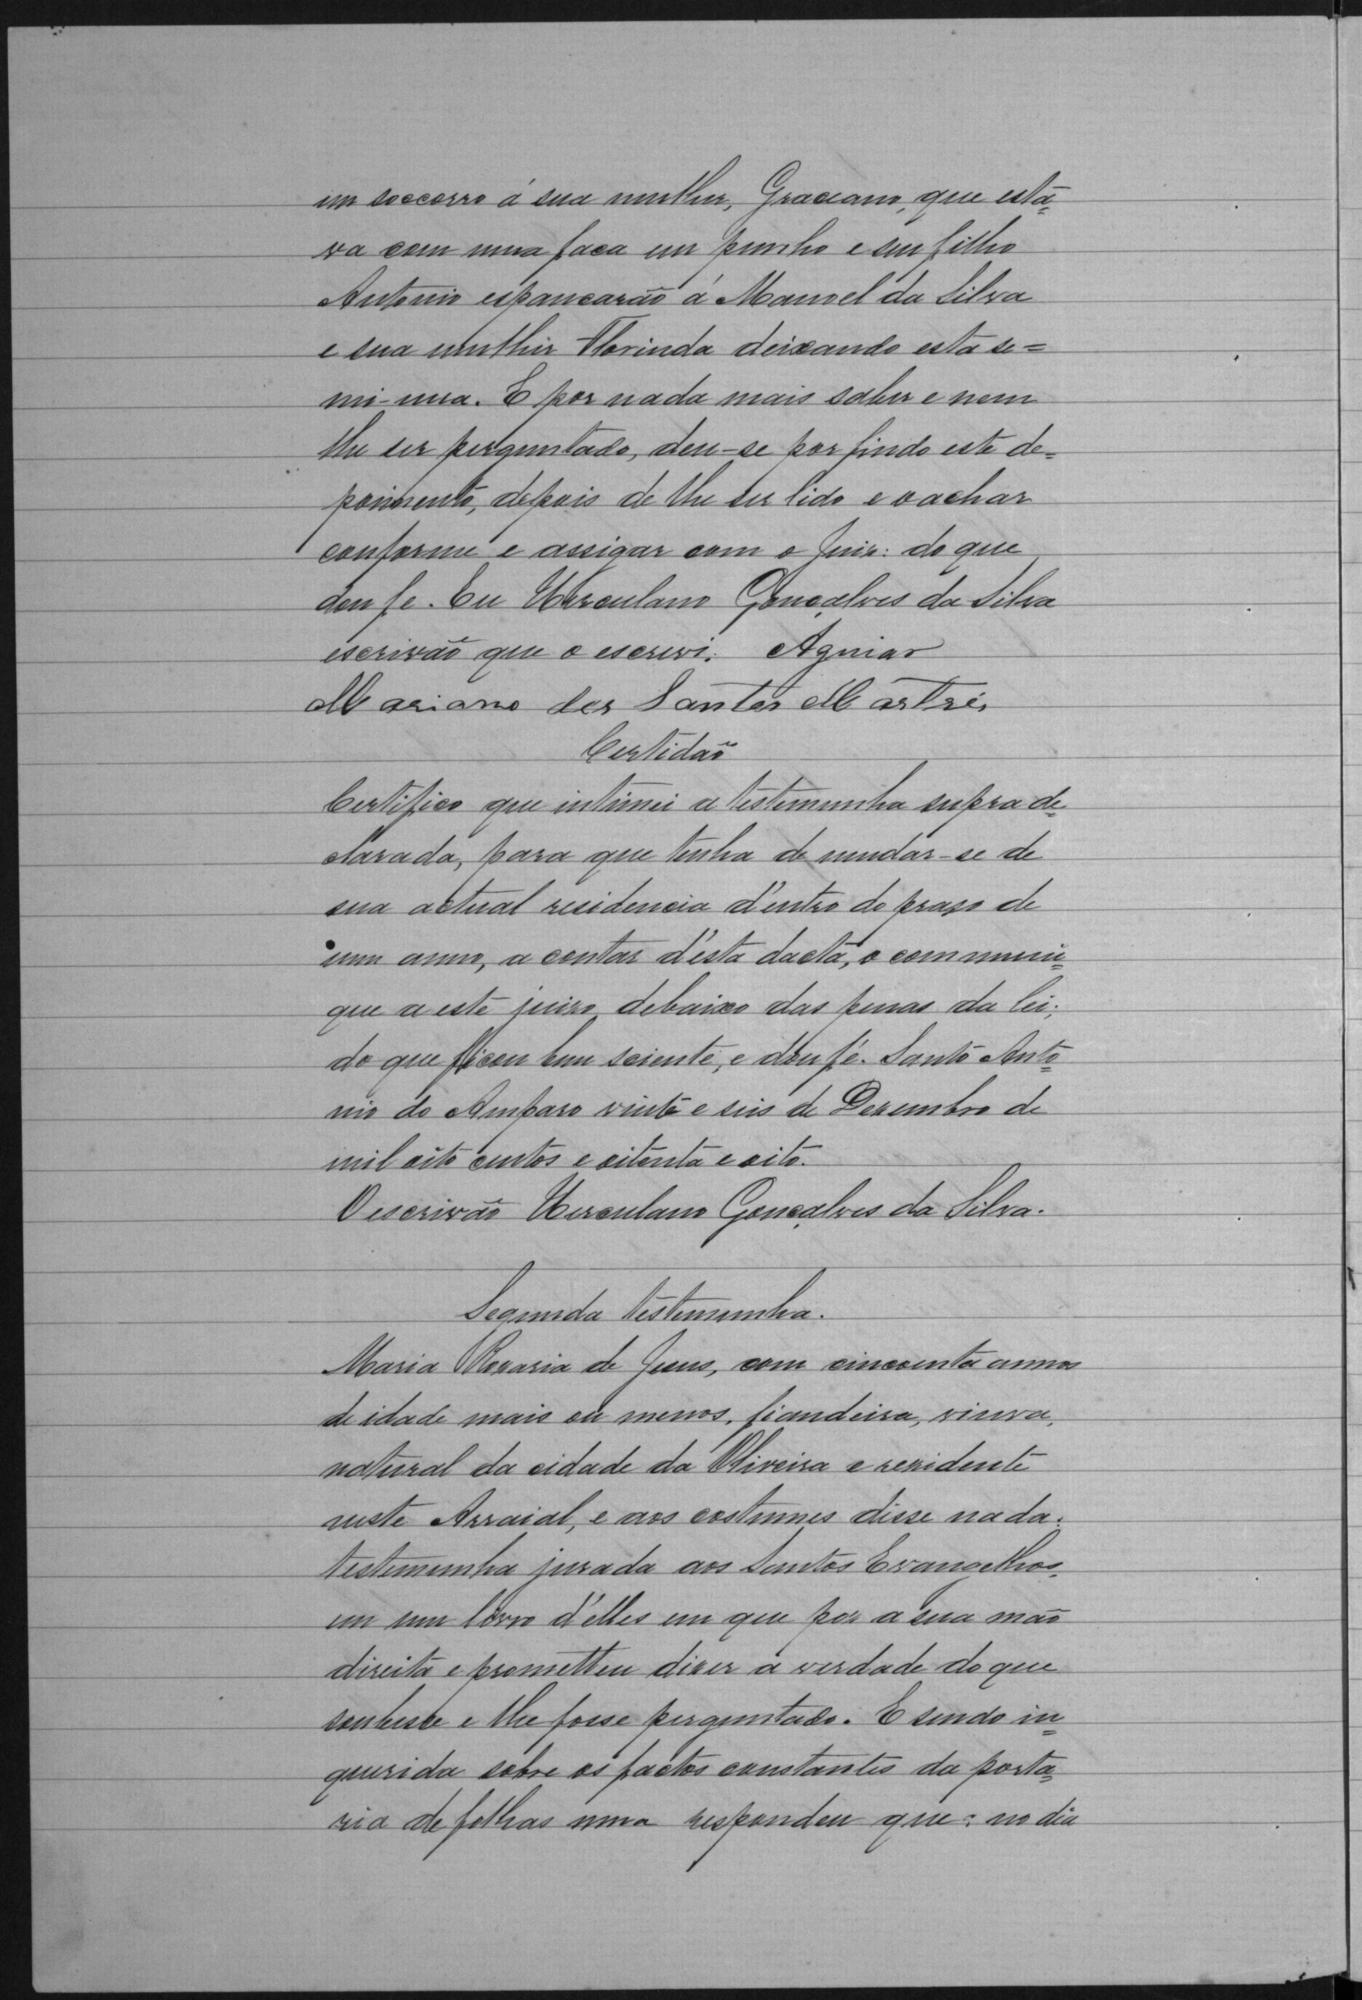 em soccorro á sua mulher, Graciano, que está=
va com uma faca em punho e seu filho
Antonio espancarão á Manoel da Silva
e sua mulher Florinda deixando esta se=
mi-nua. E por nada mais saber e nem
lhe ser perguntado, deu-se por findo este de=
poimento, depois de lhe ser lido e o achar
conforme e assigar com o Juiz: do que
dou fe. Eu Herculano Gonçalves da Silva
escrivão que o escrevi. Aguiar
Mariano dos Santos
Certidão
Certifico que intimei a testemunha supra de=
clarada, para que tenha de mudar-se de
sua actual residencia d'entro do prazo de
um anno, a contar d'esta dacta, o communi=
que a este juizo, debaixo das penas da lei;
do que ficou bem sciente, e dou fé. Santo Anto=
nio do Amparo vinte e seis de Dezembro de
mil oito centos e oitenta e oito.
O escrivão Herculano Gonçalves da Silva.
Segunda testemunha.
Maria Rozaria de Jesus, com cincoenta annos
de idade mais ou menos, fiandeira, viuva,
natural da cidade da Oliveira e rezidente
neste Arraial, e aos costumes disse nada.
testemunha jurada aos Santos Evangelhos,
em um livro d'elles em que poz a sua mão
direita e prometteu dizer a verdade do que
soubesse e lhe fosse perguntado. E sendo in=
querida sobre os factos constantes da porta=
ria de folhas uma respondeu que: no dia